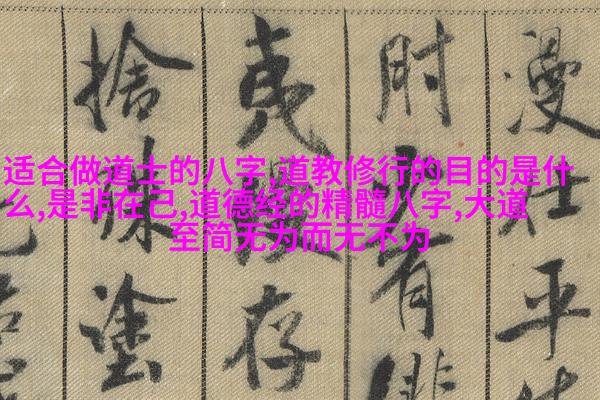 适合做道士的八字,道教修行的目的是什
么,是非在己,道德经的精髓八字,大道
至简无为而无不为
漫 平
时 有
夷 存
捨 塗